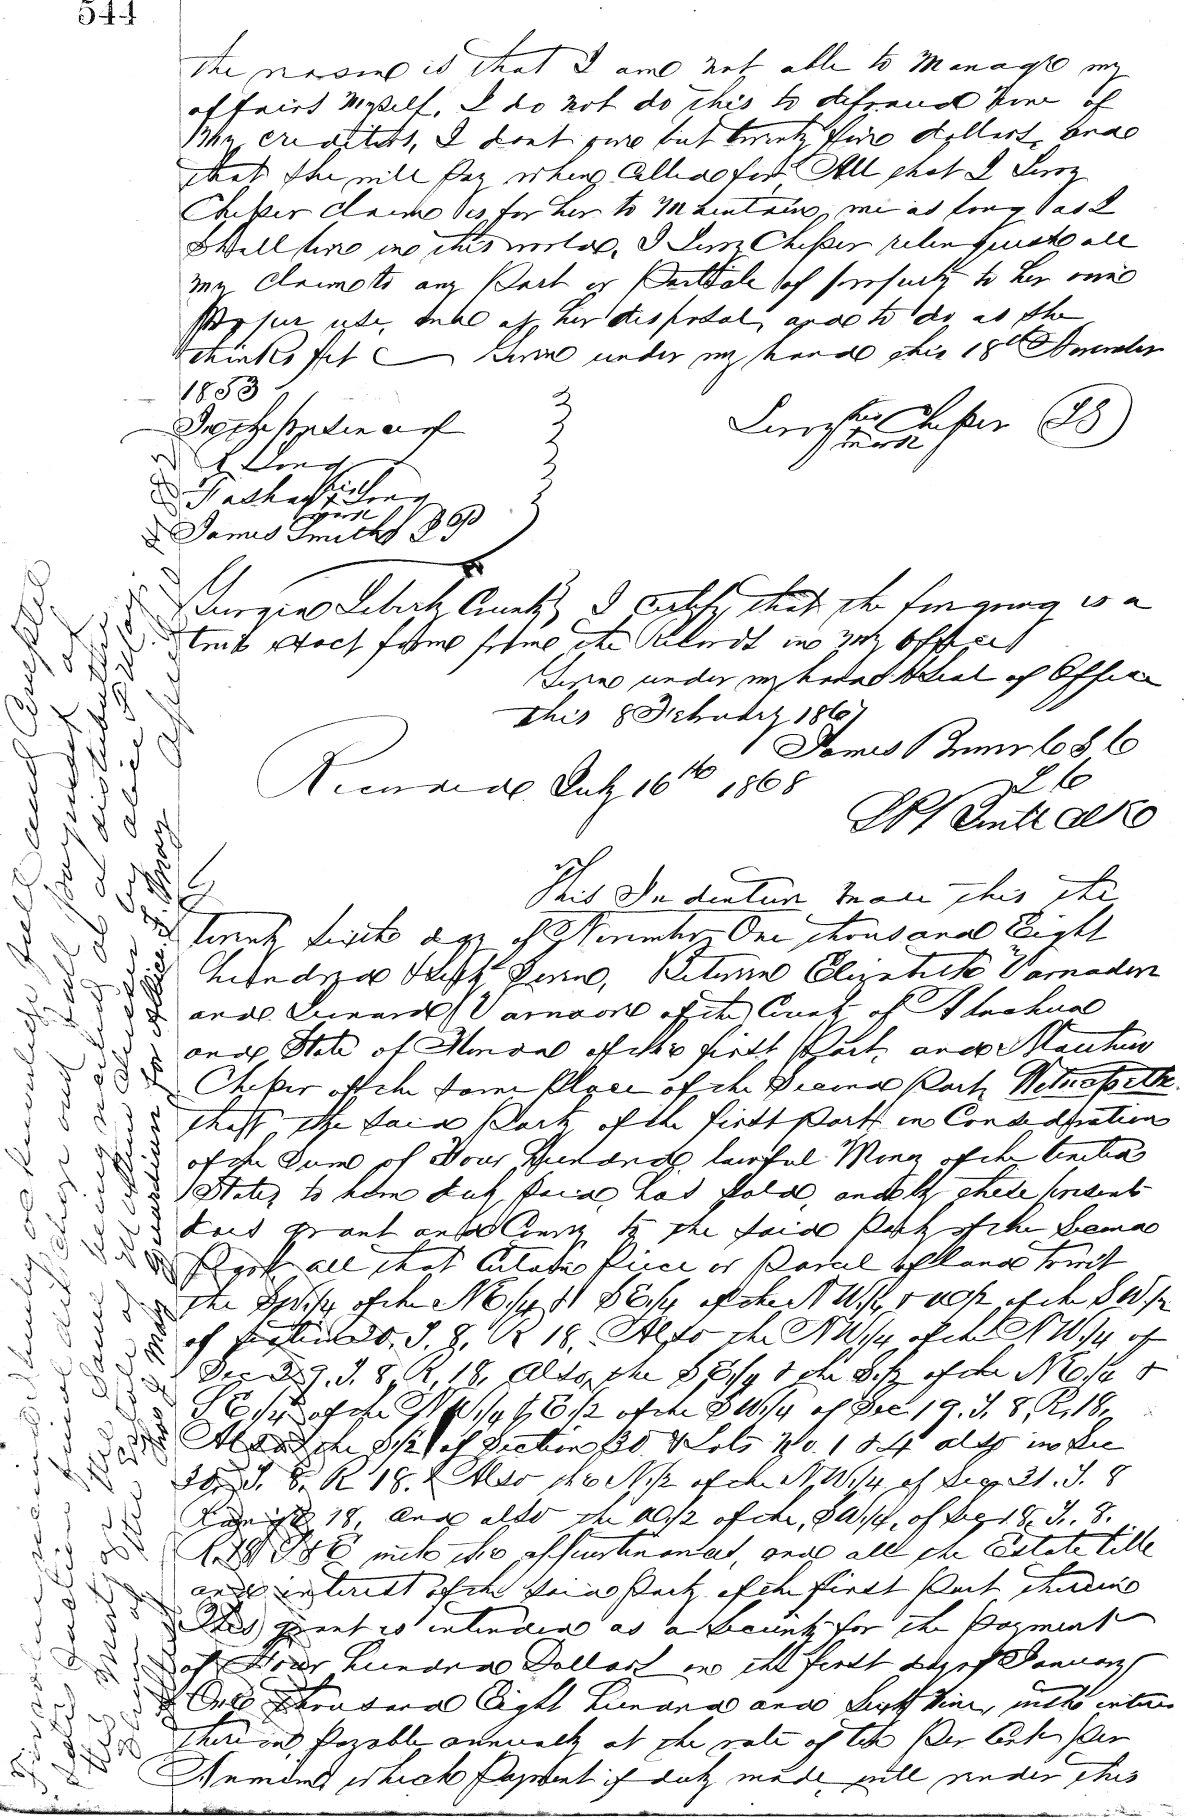 544
the reason is that I am not able to manage my
affairs myself. I do not do this to defraud none of
my creditors, I dont owe but twenty five dollars, and
that she will pay when called for. All that I Leroy
Chesser claim is for her to maintain me as long as I
shall live in this world, I Leroy Chesser relinquish all
my claim to any part or of property to her own
proper use, and at her disposal, and to do as she
thinks fit Given under my hand this 18th November
1853
In the presence of
Leroy his mark Chesser (LS)
Long
his mark Long
James Smith JP
Georgia Liberty County} I certify that the foregoing is a
true from the Records in my office
Given under my hand & Seal of Office
this 8 February 1867
James C S C
L C
Recorded July 16th 1868
This Indenture made this the
twenty sixth day of November One thousand Eight
hundred & sixty seven, Between Elizabeth Varnadore
and Varnadore of the County of Alachua
and State of Florida of the first Part, and
Chesser of the same Place of the Second Part, Witnesseth
that the said Party of the first Part in Consideration
of the Sum of Four Hundred lawful Money of the United
States to him duly paid, has sold, and by these presents
does grant and Convey to the said Party of the Second
Part all that Certain Piece or Parcel of land to wit
the SW1/4 of the NE1/4 & SE1/4 of the NW1/4 & W1/2 of the SW1/2
of section 20. T. 8. R 18. Also the NW1/4 of the NW1/4 of
Sec 29. T. 8. R. 18, Also the SE1/4 & the S1/2 of the NE1/4 &
SE1/4 of the NW1/4 & E1/2 of the SW1/4 of Sec 19. T. 8. R. 18,
Also the of Section 30 & Lots No. 1 & 4 also in Sec
30. T. 8. R 18. & Also the N1/2 of the NW1/4 of Sec 31. T. 8
Range 18, and also the W1/2 of the SW1/4 of Sec 18. T. 8.
R. 18 S & E with the appurtenances, and all the Estate title
and interest of the said Party of the first Part therein
This grant is intended as a Security for the Payment
of Four hundred Dollars on the first day of January
One thousand Eight hundred and Sixty Nine, with interest
thereon, payable annually at the rate of ten Per Cent Per
Annum, which Payment if duly made, will render this
For value received I hereby acknowledge full and complete
satisfaction final discharge and full payment of
this Mortgage the same being received as a distributive
share of the Estate of Chesser by Alice
Thos J May Guardian for Alice J. May